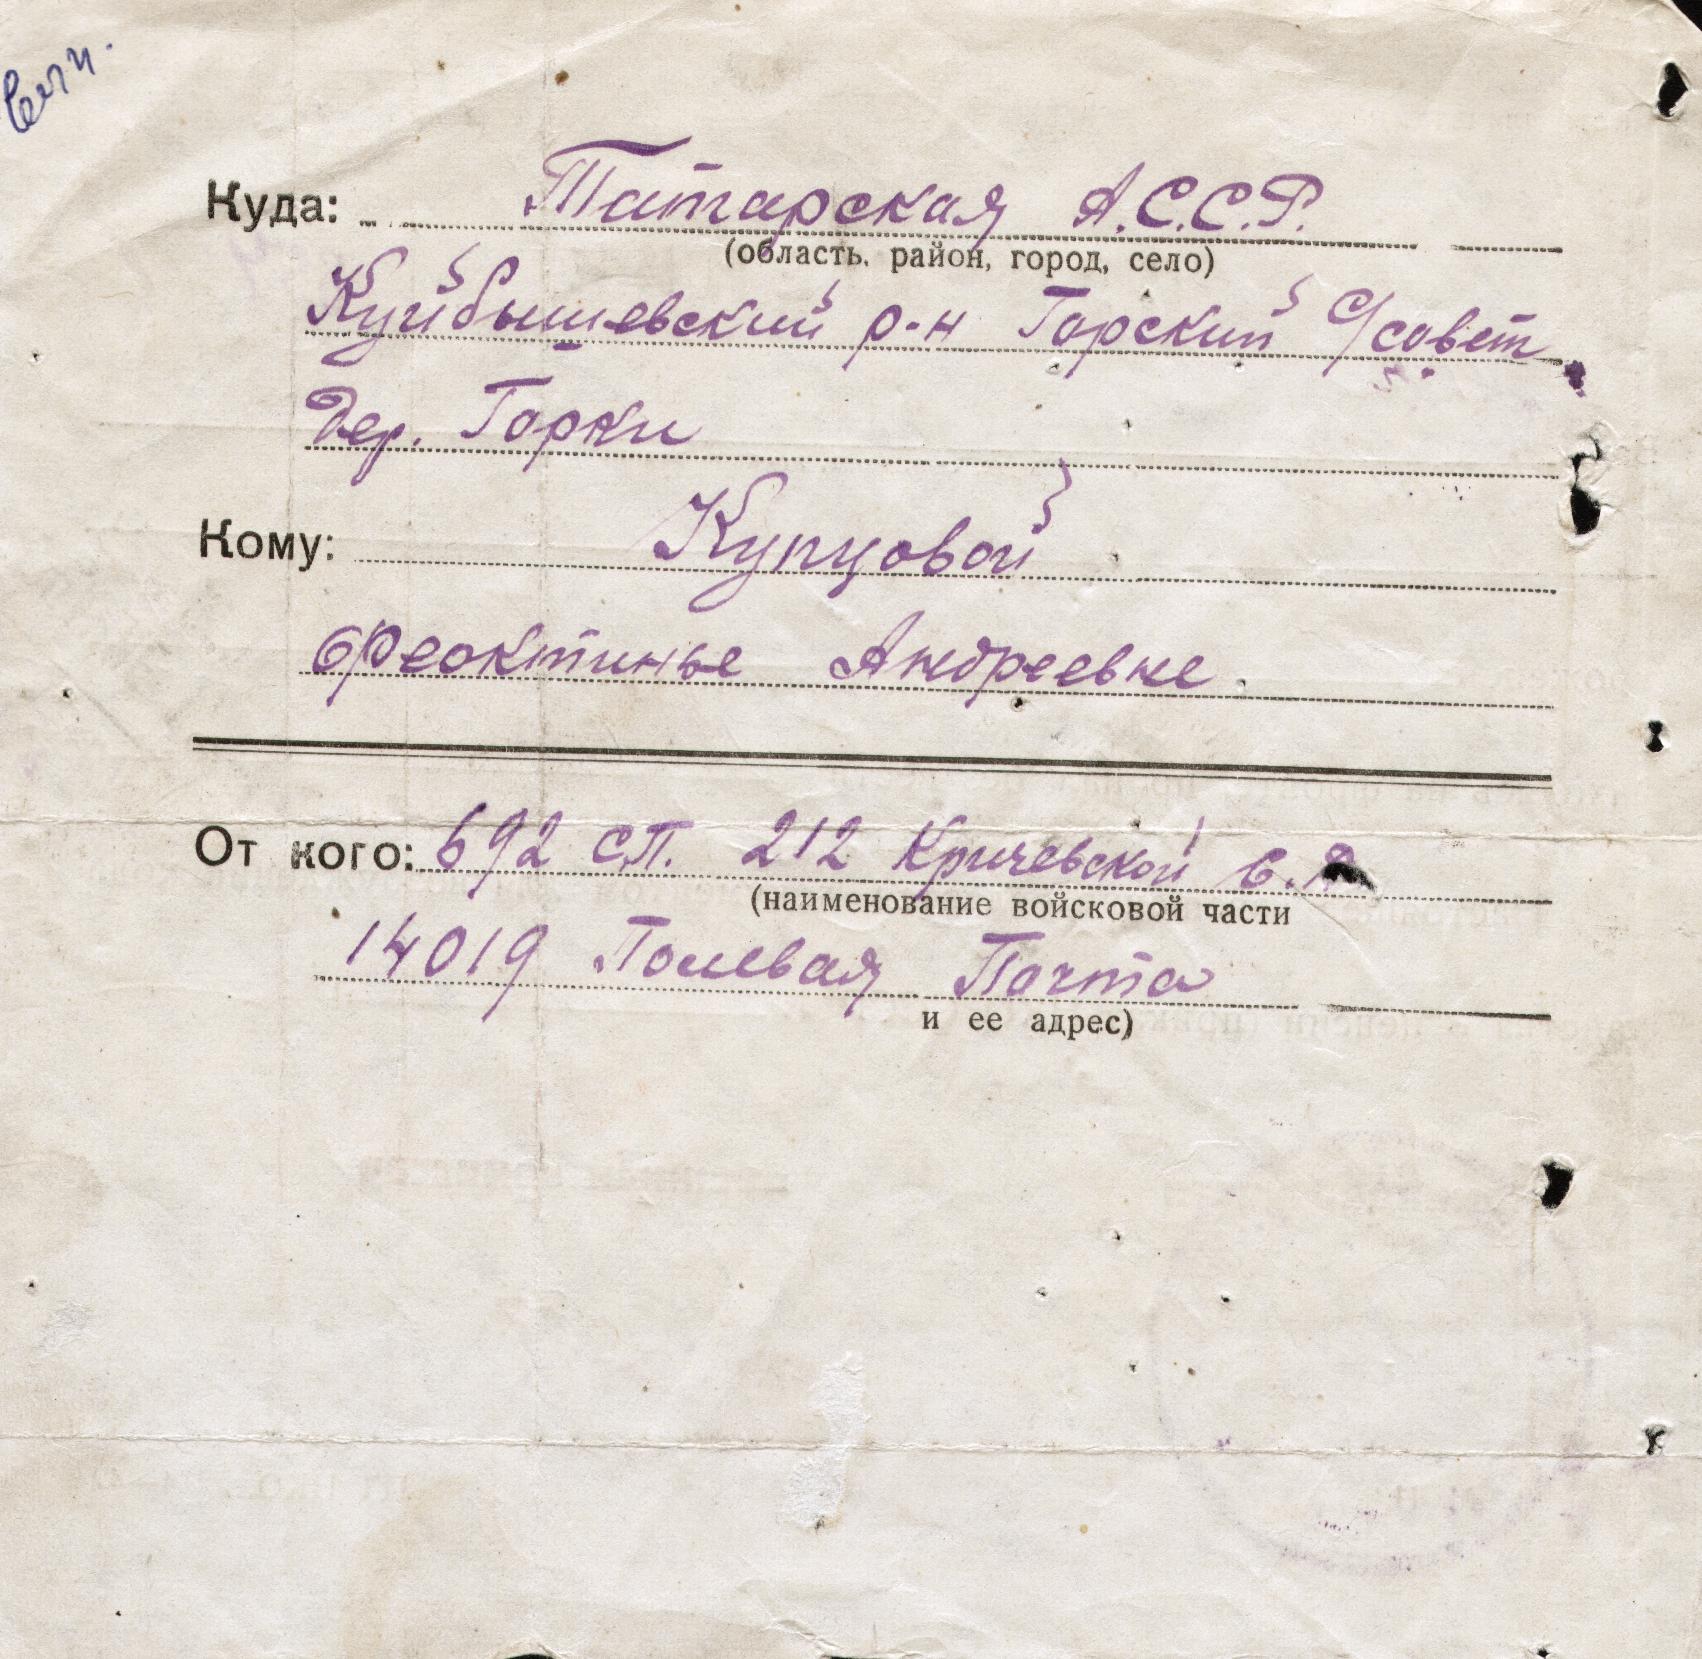 Куда: Татарская А.С.С.Р.
(область, район, город, село)
Куйбышевский р-н Горский с/совет
дер. Горки
Кому: Купцовой
Феоктинье Андреевне.
От кого: 692 с.п. 212 Кричевской с.д.
(наименование войсковой части
14019 Полевая Почта
и ее адрес)